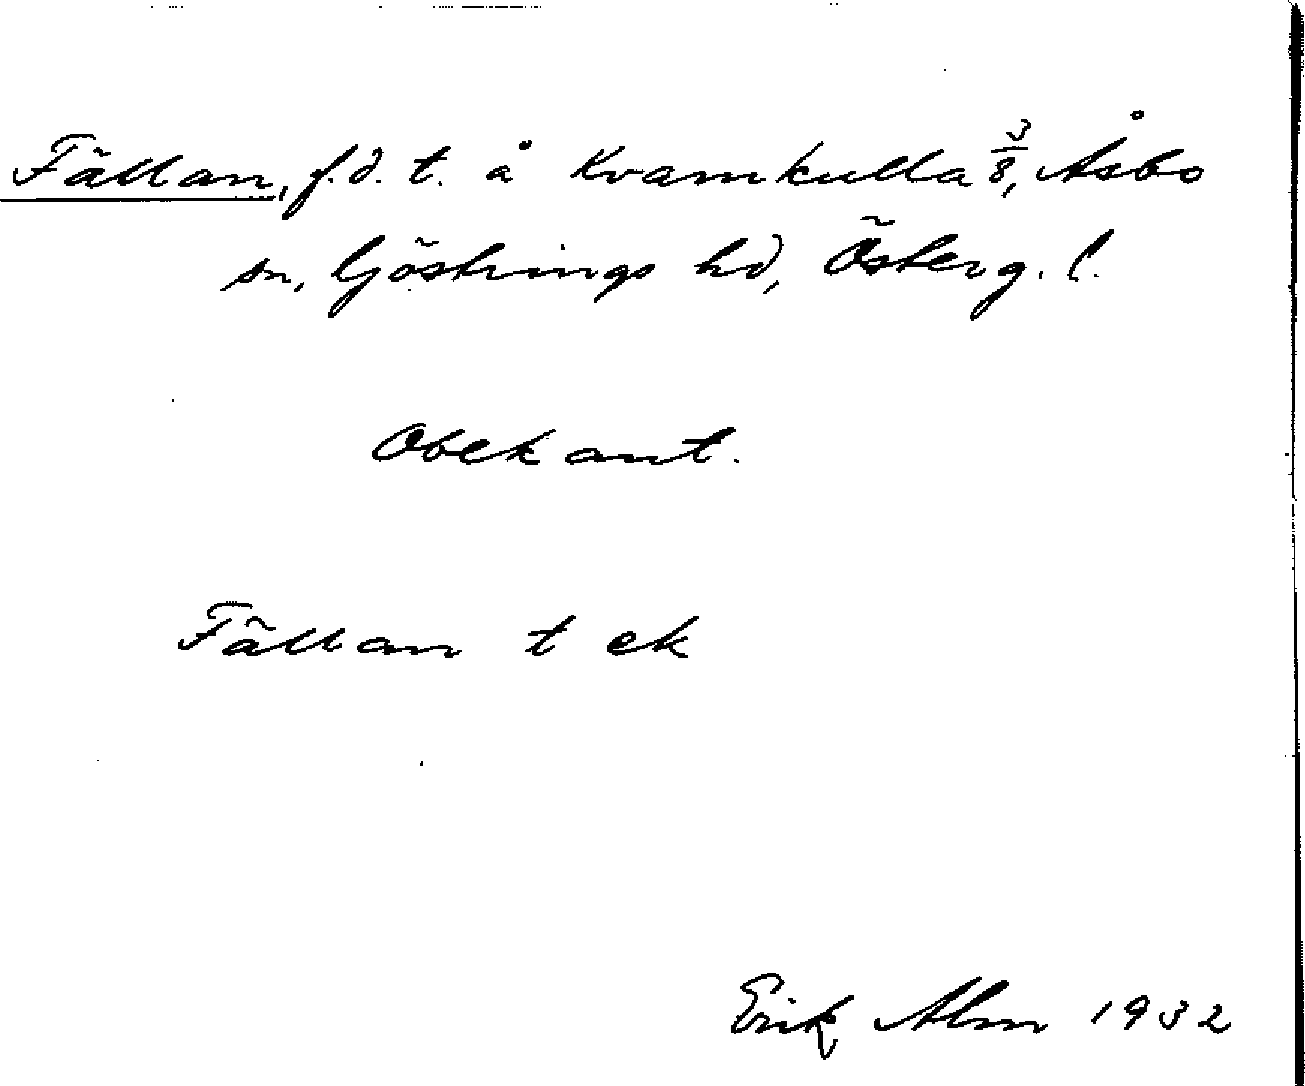 Fällan, f.d. t. å Kvarnkulla 3/8, Åsbo
sn, Göstrings hd, Österg. l.
Obekant.
Fällan t ek
Erik Alm 1932